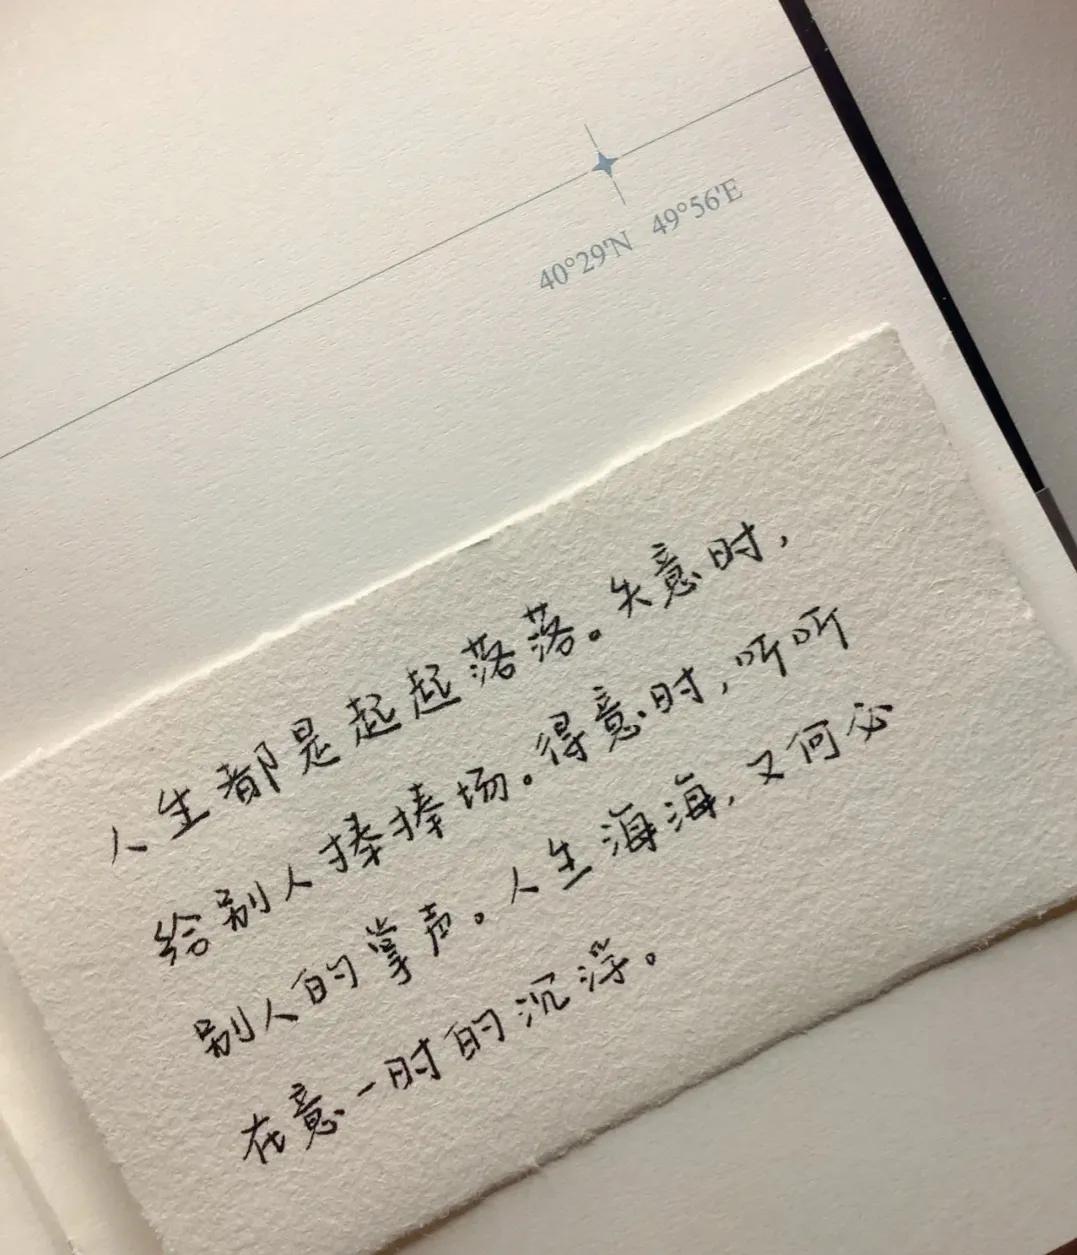 40°29'N 49°56'E
人生都是起起落落。失意时,
给别人捧捧场。得意时,听听
别人的掌声。人生海海,又何必
在意一时的沉浮。